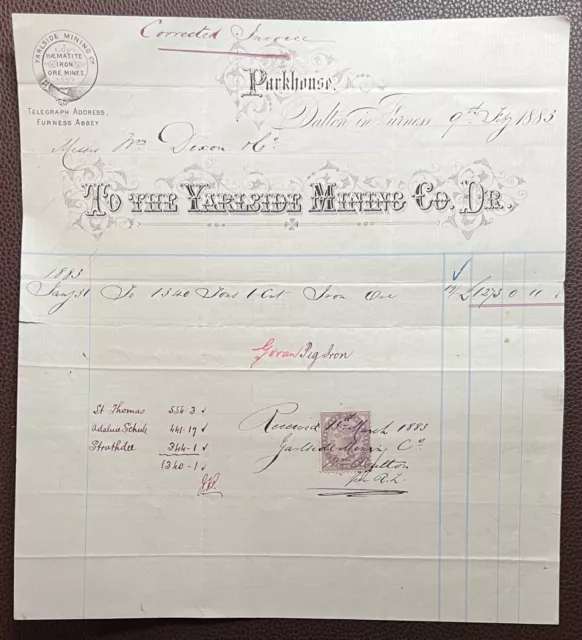 Corrected Invoice
YARLSIDE MINING Co
HÆMATITE
IRON
ORE MINES
TELEGRAPH ADDRESS,
FURNESS ABBEY
Parkhouse.
Dalton in Furness 9th Feby 1883
Messrs Wm Dixon & Co
TO THE YARLSIDE MINING CO. DR.
1883
Jany 31 To 1340 Tons 1 Cwt Iron Ore 19/ £1273 0 11
Govan Pig Iron
St Thomas 554.3 ✓
Adeline Schult 441.19 ✓
Strathdee 344-1 ✓
1340-1 ✓
Received 15th March 1883
Yarlside Mining Co
Wm Boulton